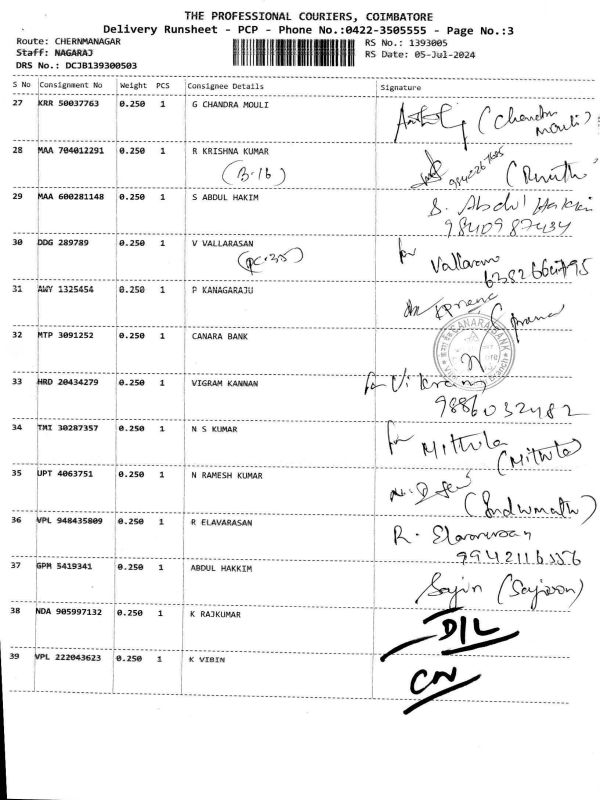 THE PROFESSIONAL COURIERS, COIMBATORE
Delivery Runsheet - PCP - Phone No.:0422-3505555 - Page No.:3
Route: CHERNMANAGAR
Staff: NAGARAJ
DRS No.: DCJB139300503
RS No.: 1393005
RS Date: 05-Jul-2024
S No Consignment No Weight PCS Consignee Details Signature
27 KRR 50037763 0.250 1 G CHANDRA MOULI
(Chandra
Mouli)
28 MAA 704012291 0.250 1 R KRISHNA KUMAR
(B-16)
29 MAA 600281148 0.250 1 S ABDUL HAKIM S. Abdul Hakkim
9840987434
30 DDG 289789 0.250 1 V VALLARASAN for Vallarasu
31 AWY 1325454 0.250 1 P KANAGARAJU
32 MTP 3091252 0.250 1 CANARA BANK
CANARA BANK
33 HRD 20434279 0.250 1 VIGRAM KANNAN for Vikram
9886032482
34 TMI 30287357 0.250 1 N S KUMAR for Mithula
(Mithula)
35 UPT 4063751 0.250 1 N RAMESH KUMAR
(Indumathi)
36 VPL 948435809 0.250 1 R ELAVARASAN R. Elavarasan
37 GPM 5419341 0.250 1 ABDUL HAKKIM Sajin
38 NDA 905997132 0.250 1 K RAJKUMAR D/L
39 VPL 222043623 0.250 1 K VIBIN